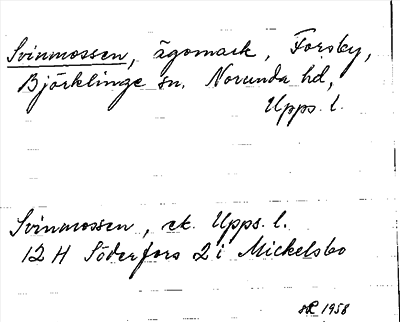 Svinmossen, ägomark, Forsby,
Björklinge sn. Norunda hd,
Upps. l.
Svinmossen, ek. Upps. l.
12 H Söderfors 2 i Mickelsbo
1958